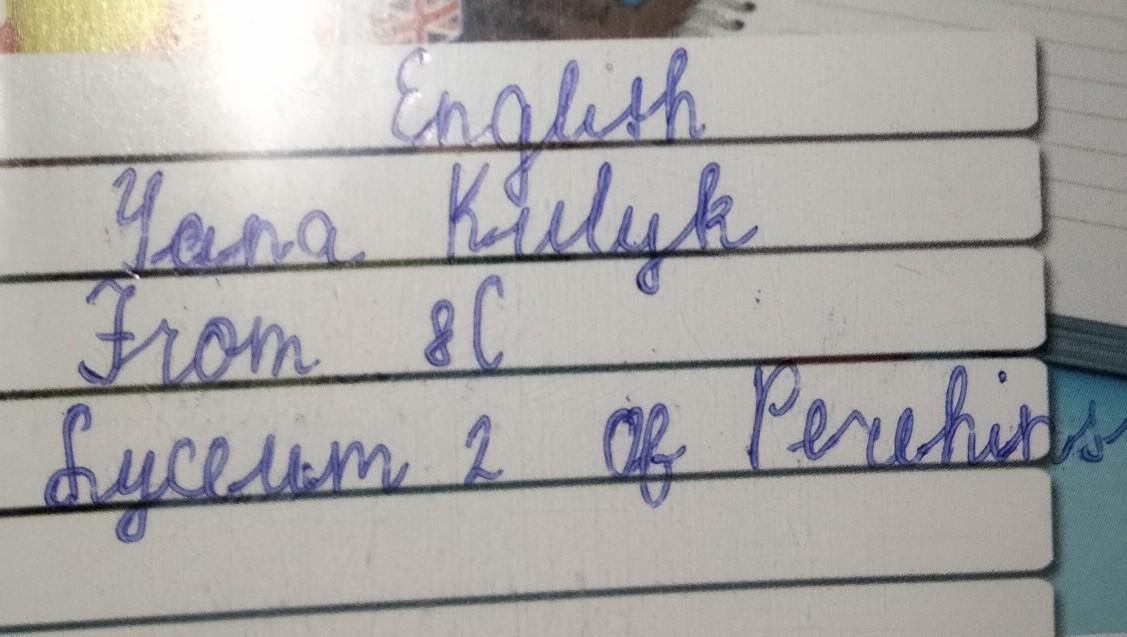 English
Yana Kulyk
From 8C
Lyceum 2 of Perehins